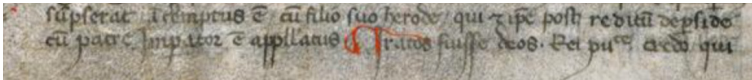 sūpserat īteremptus ē cū filio suo herode qui ⁊ ipē post reditū de pside
cū patre Impator ē appllatus Tratos fuisse deos. Rei puce credo qui